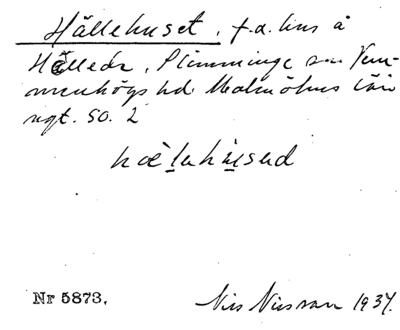 Hällehuset, f.d. hus å
Hälleda, Slimminge sn Vem-
menhögs hd. Malmöhus län
upt. SO. 2
hæ̀lahuːsəd
Nr 5873.
Nils Nilsson 1937.